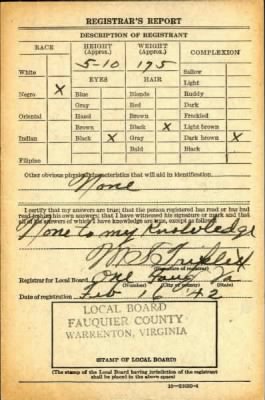 REGISTRAR'S REPORT
DESCRIPTION OF REGISTRANT
RACE HEIGHT (Approx.) WEIGHT (Approx.) COMPLEXION
5-10 195
White Sallow
EYES HAIR Light
Negro X Blue Blonde Ruddy
Gray Red Dark
Oriental Hazel Brown Freckled
Brown Black X Light brown
Indian Black X Gray Dark brown X
Bald Black
Filipino
Other obvious physical characteristics that will aid in identification
None
I certify that my answers are true; that the person registered has read or has had
read to him his own answers; that I have witnessed his signature or mark and that
all of his answers of which I have knowledge are true, except as follows:
None to my Knowledge
(Signature of registrar)
Registrar for Local Board One Va
(Number) (City or county) (State)
Date of registration Feb 16 42
LOCAL BOARD
FAUQUIER COUNTY
WARRENTON, VIRGINIA
(STAMP OF LOCAL BOARD)
(The stamp of the Local Board having jurisdiction of the registrant
shall be placed in the above space)